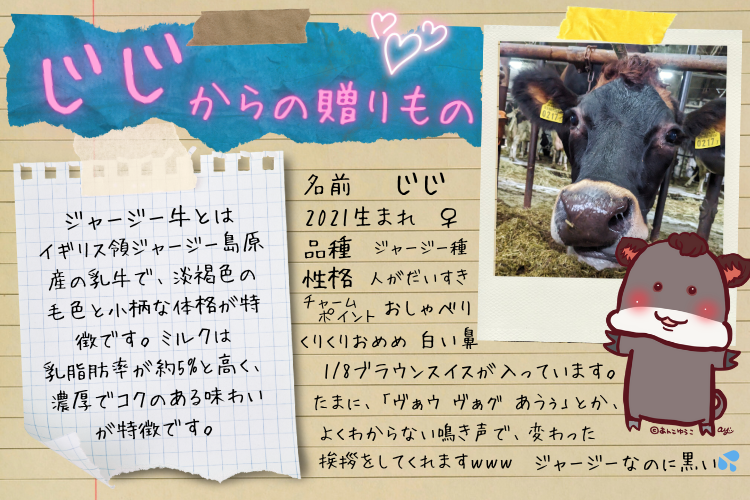 じじからの贈りもの
ジャージー牛とは
イギリス領ジャージー島原
産の乳牛で、淡褐色の
毛色と小柄な体格が特
徴です。ミルクは
乳脂肪率が約5%と高く、
濃厚でコクのある味わい
が特徴です。
名前 じじ
2021生まれ ♀
品種 ジャージー種
性格 人がだいすき
チャームポイント おしゃべり
くりくりおめめ 白い鼻
1/8ブラウンスイスが入っています。
たまに、「ヴぁウ ヴぁグ あうぅ」とか、
よくわからない鳴き声で、変わった
挨拶をしてくれますwww ジャージーなのに黒い💦
02171
02171
©あんこゆろこ